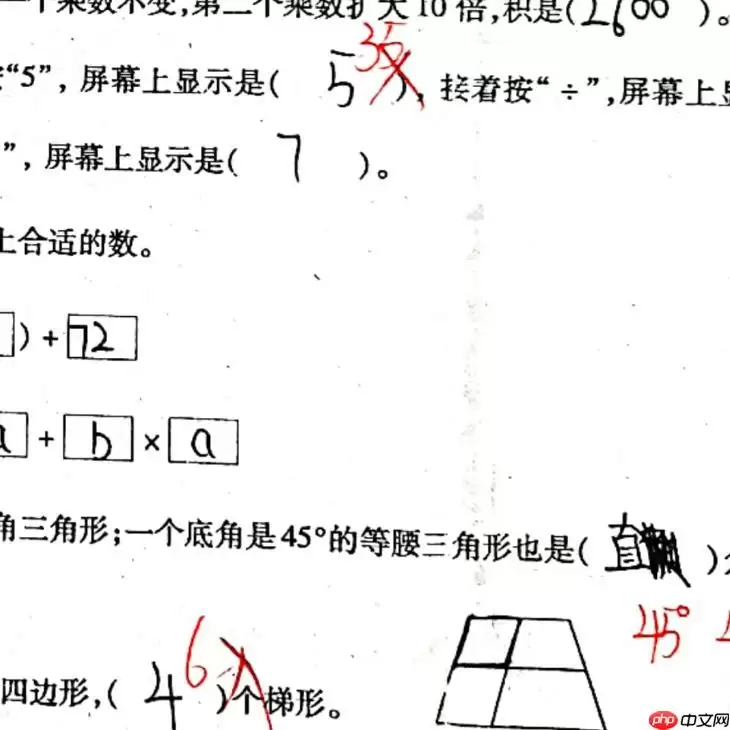 一个乘数不变,第二个乘数扩大10倍,积是(2600)。
"5",屏幕上显示是( 5 35 ),接着按"÷",屏幕上显
",屏幕上显示是( 7 )。
上合适的数。
)+72
a+b×a
角三角形;一个底角是45°的等腰三角形也是(直)
45°
四边形,(4 6)个梯形。
php中文网